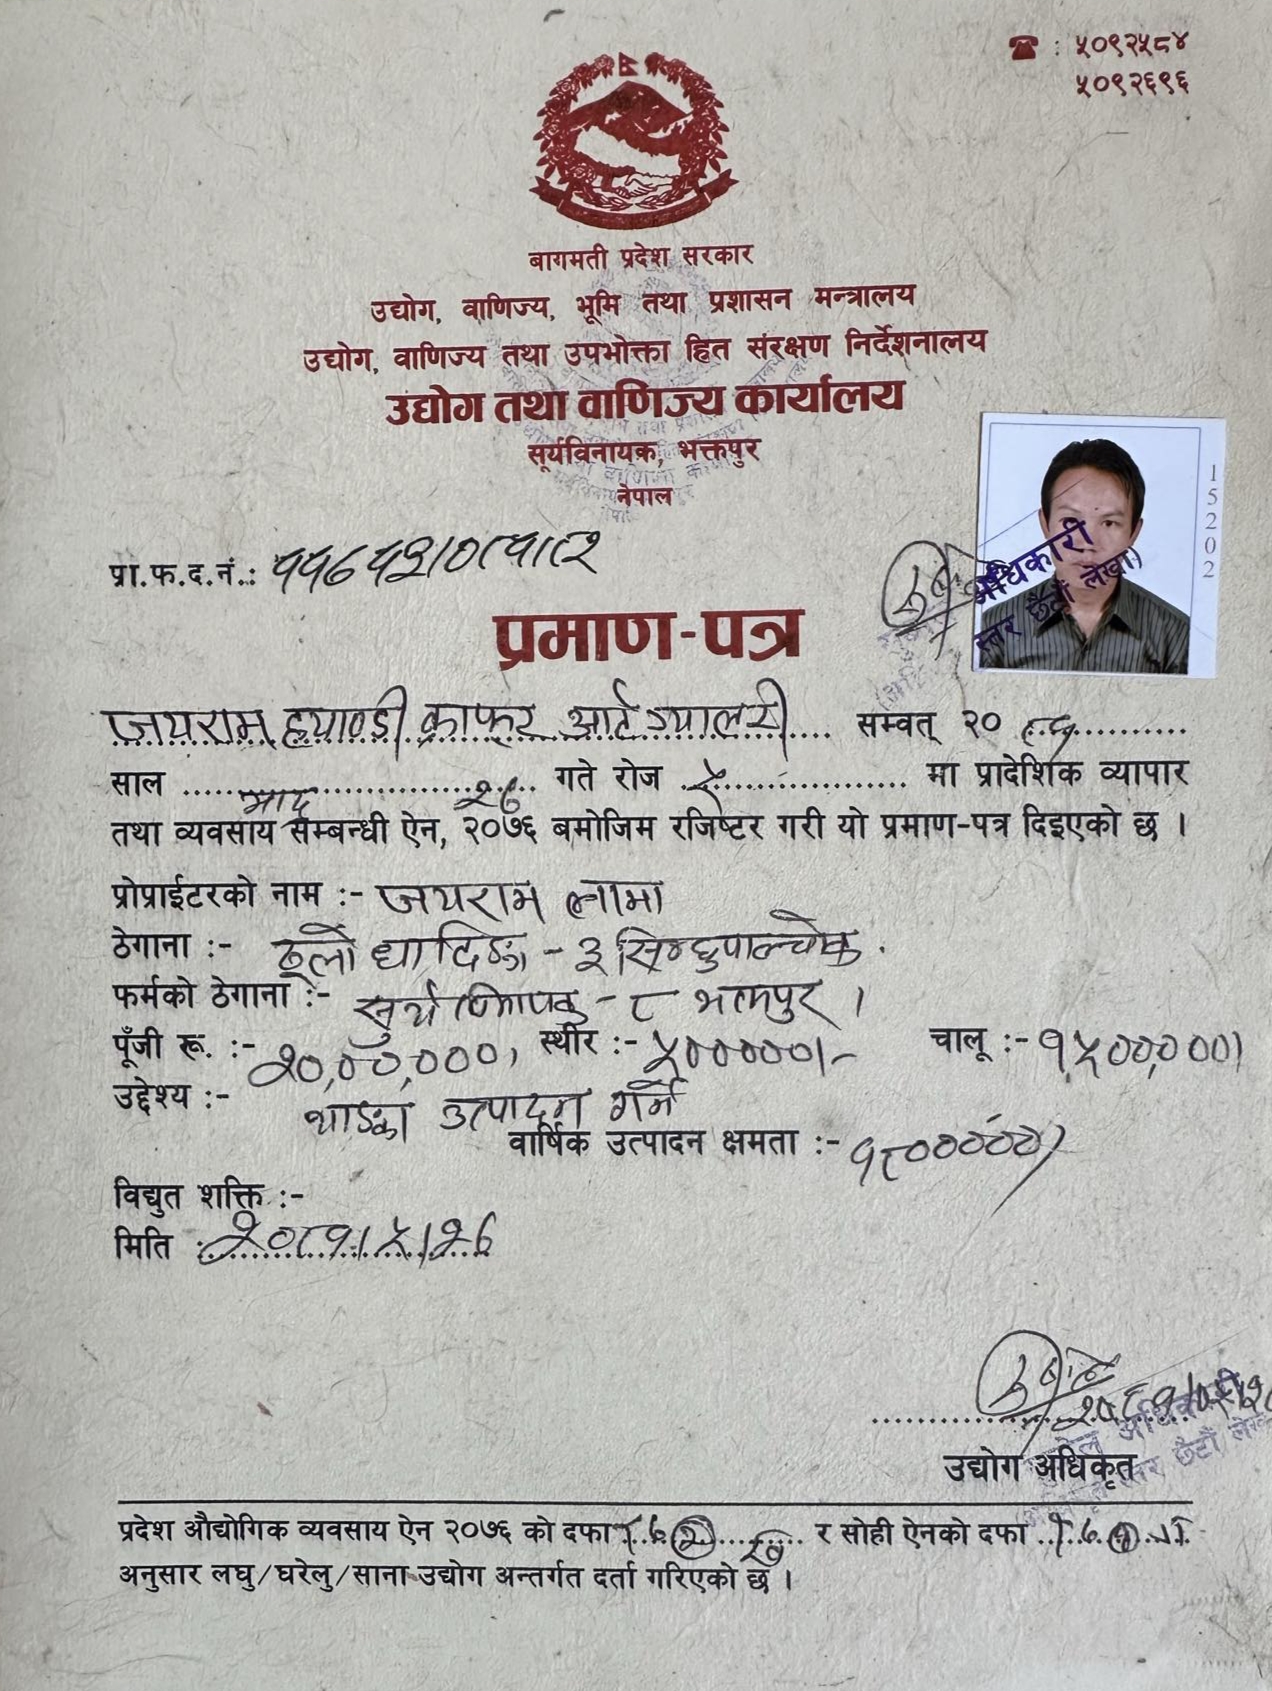 ☎ : ५०९२५८४
५०९२६९६
बागमती प्रदेश सरकार
उद्योग, वाणिज्य, भूमि तथा प्रशासन मन्त्रालय
उद्योग, वाणिज्य तथा उपभोक्ता हित संरक्षण निर्देशनालय
उद्योग तथा वाणिज्य कार्यालय
सूर्यविनायक, भक्तपुर
नेपाल
15202
प्रा.फ.द.नं.:
अधिकारी
स्तर छैटौं लेखा)
प्रमाण-पत्र
जयराम ह्याण्डी क्राफ्ट आर्ट ग्यालरी सम्वत् २०
साल भाद्र २६ गते रोज ५ मा प्रादेशिक व्यापार
तथा व्यवसाय सम्बन्धी ऐन, २०७६ बमोजिम रजिष्टर गरी यो प्रमाण-पत्र दिइएको छ ।
प्रोप्राईटरको नाम :- जयराम लामा
ठेगाना :- ठूलो धादिङ - ३ सिन्धुपाल्चोक .
फर्मको ठेगाना :- सूर्यविनायक - ८ भक्तपुर ।
पूँजी रू. :- २०,००,०००। स्थीर :- ५०००००।- चालू :- १५००,०००।
उद्देश्य :- थाङ्का उत्पादन गर्ने
वार्षिक उत्पादन क्षमता :- १८०००००/
विद्युत शक्ति :-
मिति : २०८१।५।२६
उद्योग अधिकृत
प्रदेश औद्योगिक व्यवसाय ऐन २०७६ को दफा र सोही ऐनको दफा
अनुसार लघु/घरेलु/साना उद्योग अन्तर्गत दर्ता गरिएको छ ।